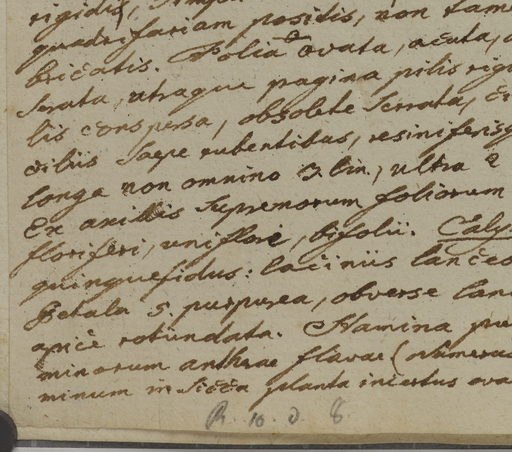 rigidis,
quadrifariam positis, non tam
bricatis. Folia ovata, acuta,
serrata, utraque pagina pilis rig
lis conspersa, obsolete serrata,
saepe rubentibus, resiniferisq
longa non omnino 3 lin., ultra 2
Ex axillis supremorum foliorum
floriferi, uniflori, bifolii. Caly
quinquefidus: laciniis lanceo
Petala 5. purpurea, obverse lan
apice rotundata. Stamina pu
minorum antherae flavae (numerus
minum in sicca planta incertus ova
R. 10. d. 8.